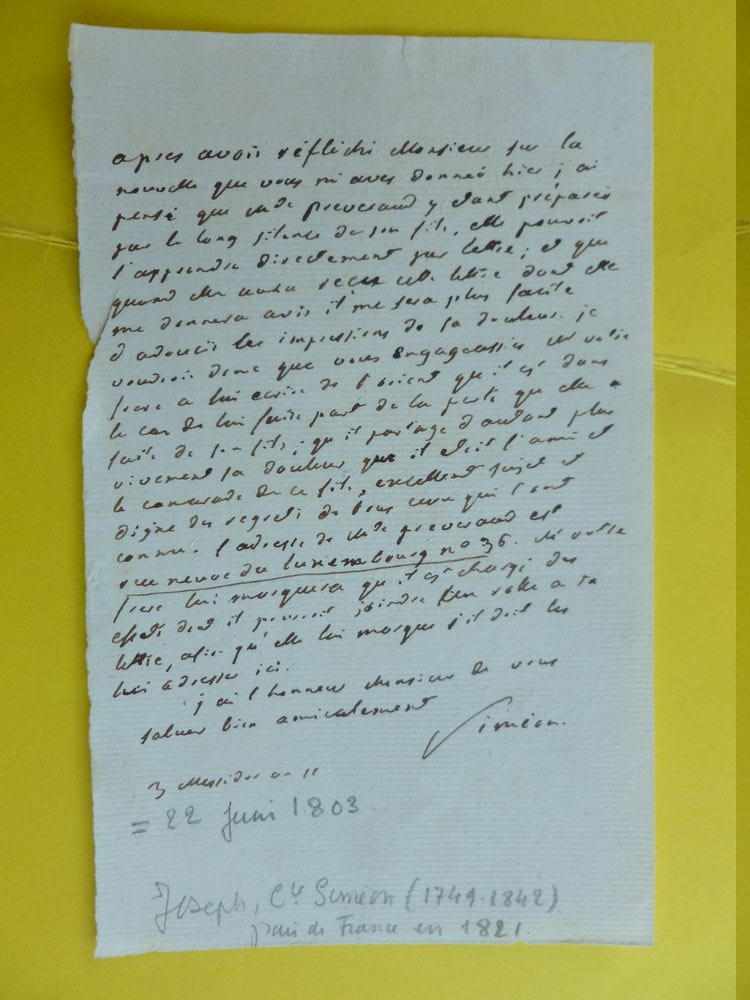 apres avoir réfléchi Monsieur sur la
nouvelle que vous m'aves donneé hier j'ai
pensé que Mde preveraud y etant préparée
par le long silence de son fils, elle pouvoit
l'apprendre directement par lettre; et que
quand elle aura recue cette lettre dont elle
me donnera avis il me sera plus facile
d'adoucir les impressions de sa douleur. je
voudrois donc que vous engageassiés Mr votre
frere a lui ecrire de l'orient qu'il est dans
le cas de lui faire part de la perte qu'elle a
faite de son fils; qu'il partage d'autant plus
vivement sa douleur que il etoit l'ami et
le camarade de ce fils, excellent sujet et
digne des regrets de tous ceux qui l'ont
connu. l'adresse de Mde preveraud est
rue neuve du luxembourg no 36. Mr votre
frere lui marquera qu'il est chargé des
effets dont il pourroit joindre une notte a sa
lettre, afin qu'elle lui marque s'il doit les
lui adresser ici.
j'ai l'honneur Monsieur de vous
saluer bien amicalement
Siméon.
3 Messidor an 11
= 22 Juin 1803.
Joseph, Cte Siméon (1749-1842)
pair de France en 1821.